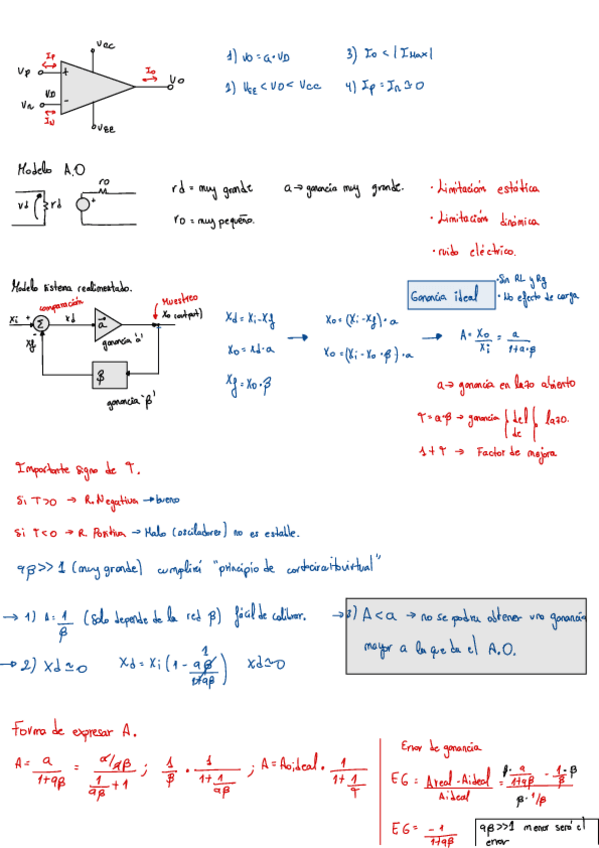 Vcc
Ip
Vp
+
Io
Vo
VD
Vn
-
In
VEE
1) vo = a·VD
3) Io < |IMax|
2) VEE < VO < Vcc
4) Ip = In ≃ 0
Modelo A.O
ro
vd
rd
+
rd = muy grande
a → ganancia muy grande.
ro = muy pequeño.
· Limitación estática
· Limitación dinámica
· ruido eléctrico.
Modelo sistema realimentado.
comparación
Muestreo
xi
+
Σ
xd
a
xo (output)
xf
-
ganancia 'a'
β
ganancia 'β'
Xd = Xi - Xf
Xo = Xd·a
Xf = Xo·β
→
Xo = (Xi - Xf)·a
Xo = (Xi - Xo·β)·a
→
Ganancia ideal
· Sin RL y Rg
· No efecto de carga
A = Xo/Xi = a/1+a·β
a → ganancia en lazo abierto
T = a·β → ganancia { del / de } lazo.
1 + T → Factor de mejora
Importante signo de T.
Si T>0 → R. Negativa → bueno
Si T<0 → R. Positiva → Malo (osciladores) no es estable.
aβ >> 1 (muy grande) cumplirá "principio de cortocircuito virtual"
→ 1) A = 1/β (solo depende de la red β) fácil de calibrar.
→ 3) A < a → no se podrá obtener una ganancia
mayor a la que da el A.O.
→ 2) Xd ≃ 0 Xd = Xi (1 - aβ/1+aβ) 1 Xd ≃ 0
Forma de expresar A.
A = a/1+aβ = a/aβ / 1/aβ + 1 ; 1/β · 1/1+1/aβ ; A = Aoideal · 1/1+1/T
Error de ganancia
EG = Areal - Aideal/Aideal = β· a/1+aβ - 1/β ·β / β·1/β
EG = -1/1+aβ
aβ >> 1 menor será el
error